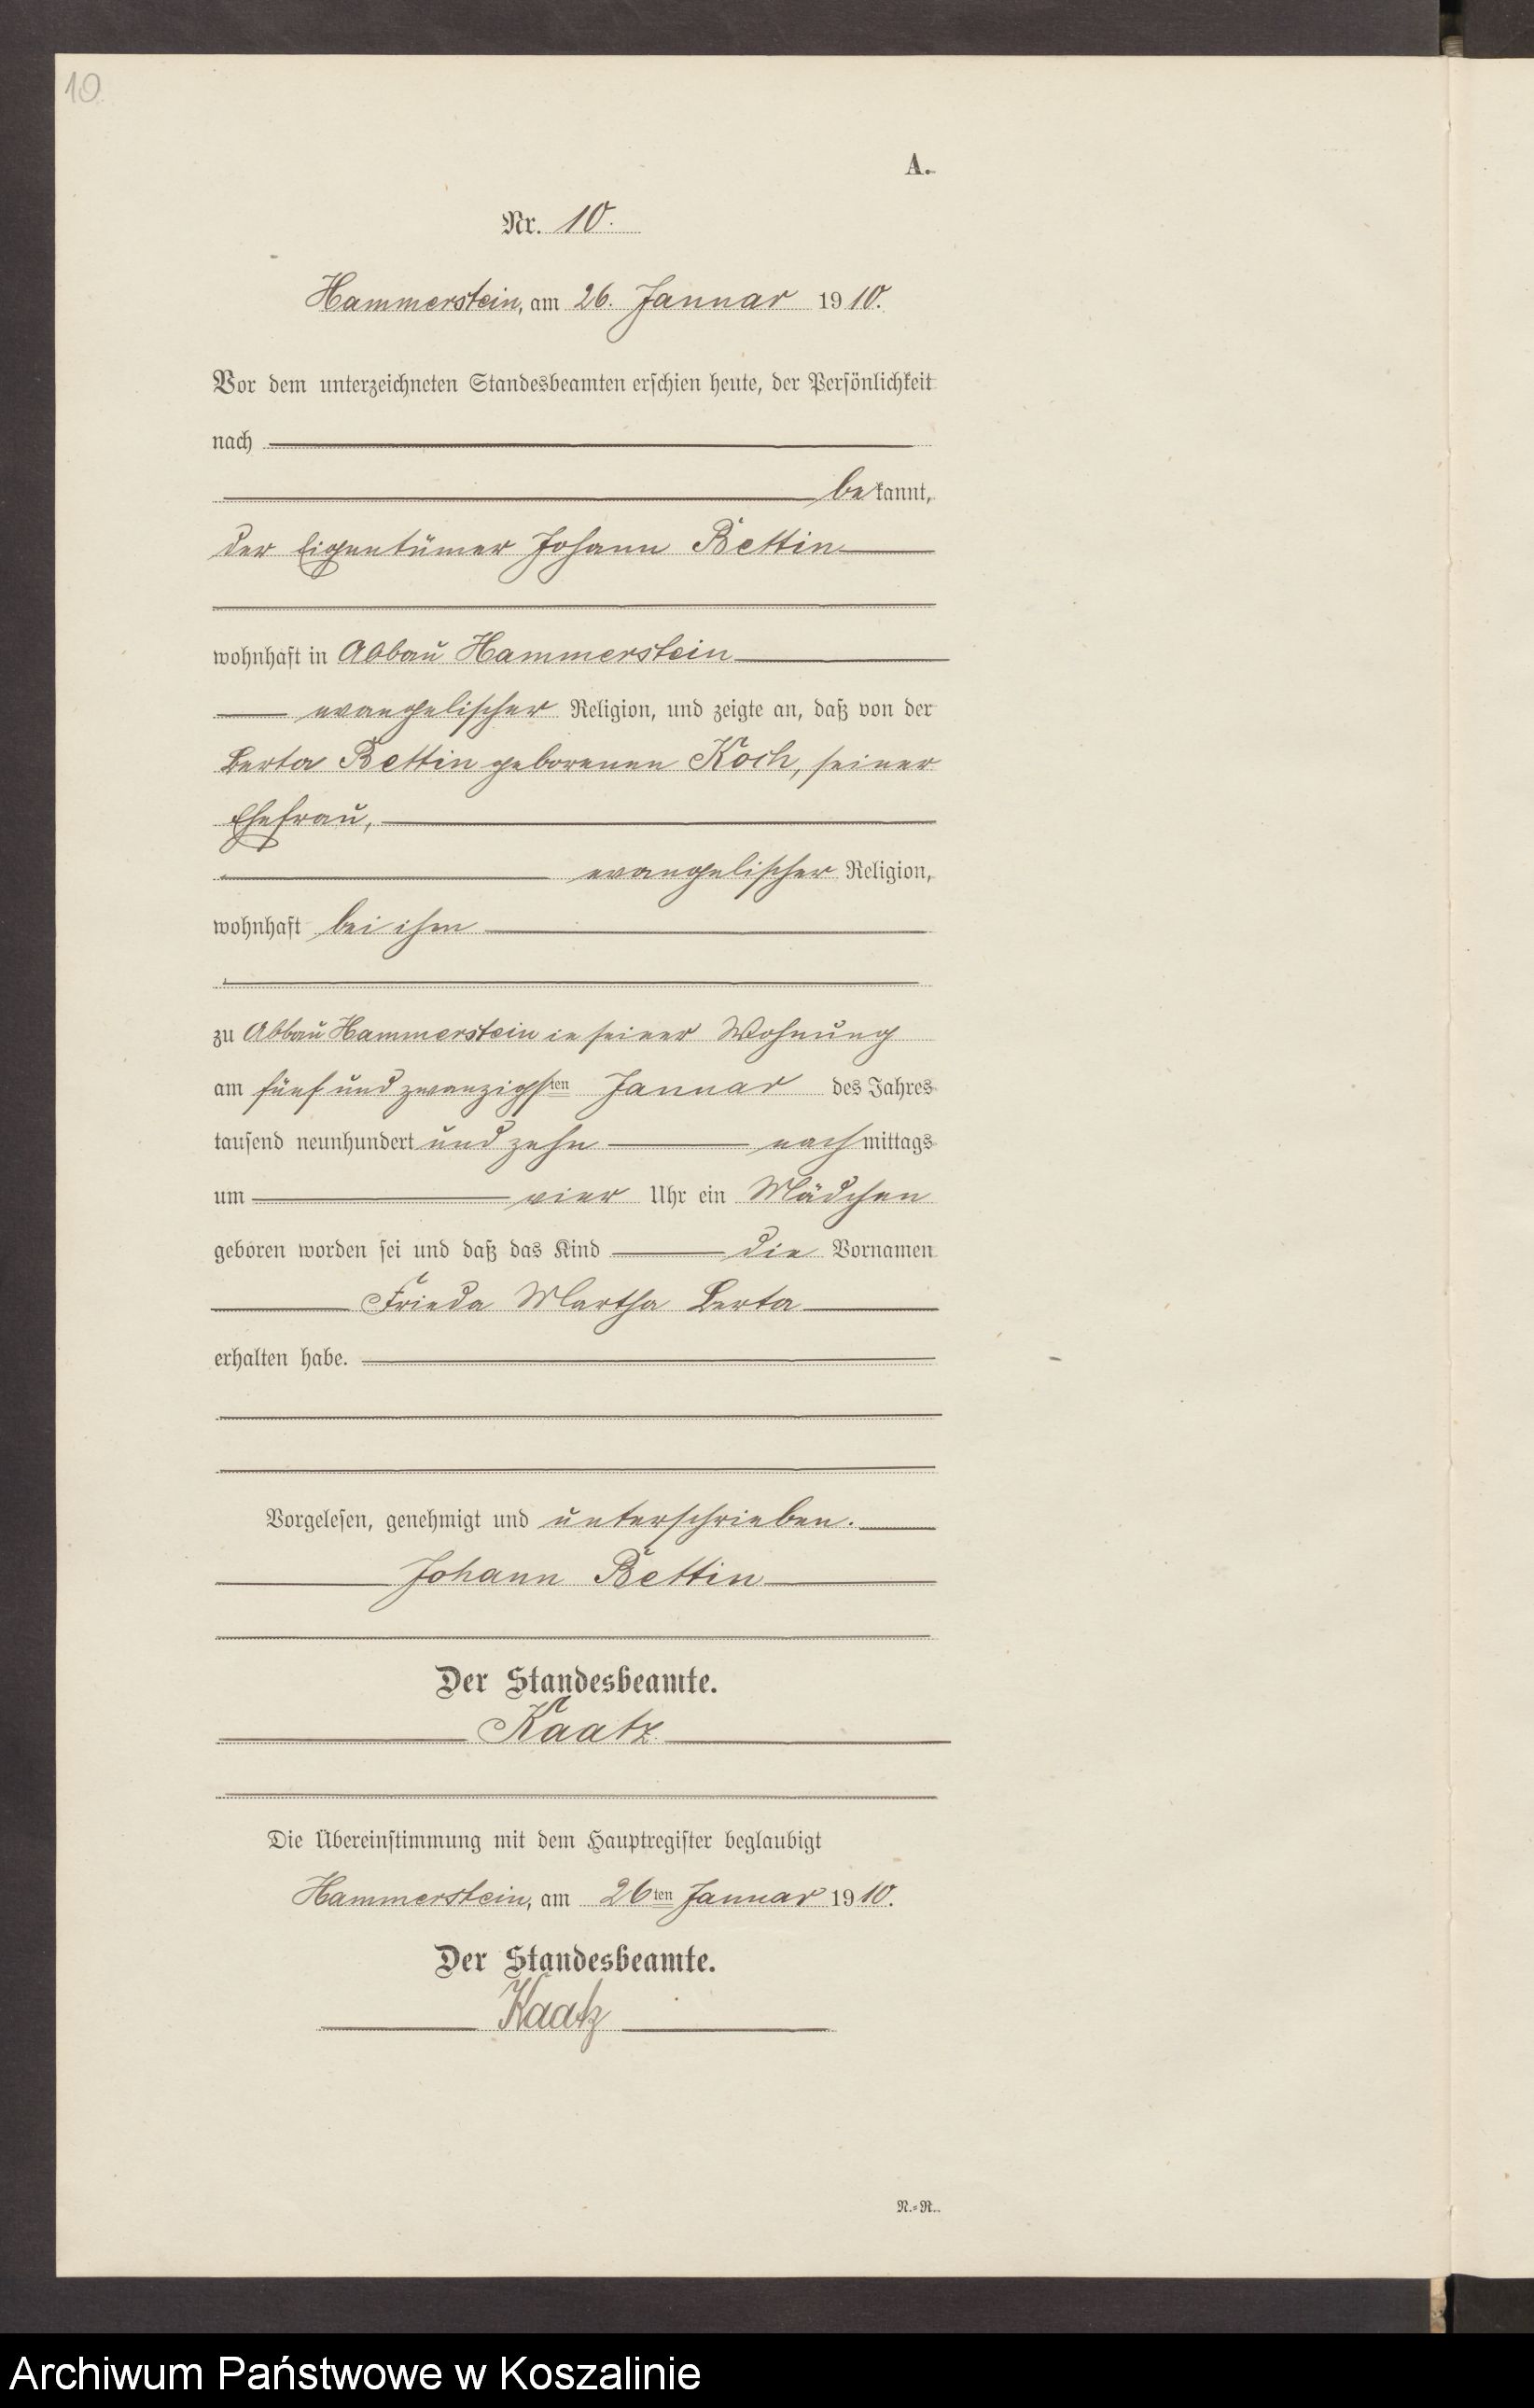 10
A.
Nr. 10.
Hammerstein, am 26. Januar 1910.
Vor dem unterzeichneten Standesbeamten erschien heute, der Persönlichkeit
nach
bekannt,
der Eigentümer Johann Bettin
wohnhaft in Abbau Hammerstein
evangelischer Religion, und zeigte an, daß von der
Berta Bettin geborenen Koch, seiner
Ehefrau,
evangelischer Religion,
wohnhaft bei ihm
zu Abbau Hammerstein in seiner Wohnung
am fünf und zwanzigsten Januar des Jahres
tausend neunhundert und zehn nachmittags
um vier Uhr ein Mädchen
geboren worden sei und daß das Kind die Vornamen
Frieda Martha Berta
erhalten habe.
Vorgelesen, genehmigt und unterschrieben.
Johann Bettin
Der Standesbeamte.
Kaatz
Die Übereinstimmung mit dem Hauptregister beglaubigt
Hammerstein, am 26ten Januar 1910.
Der Standesbeamte.
Kaatz
N.=R.
Archiwum Państwowe w Koszalinie